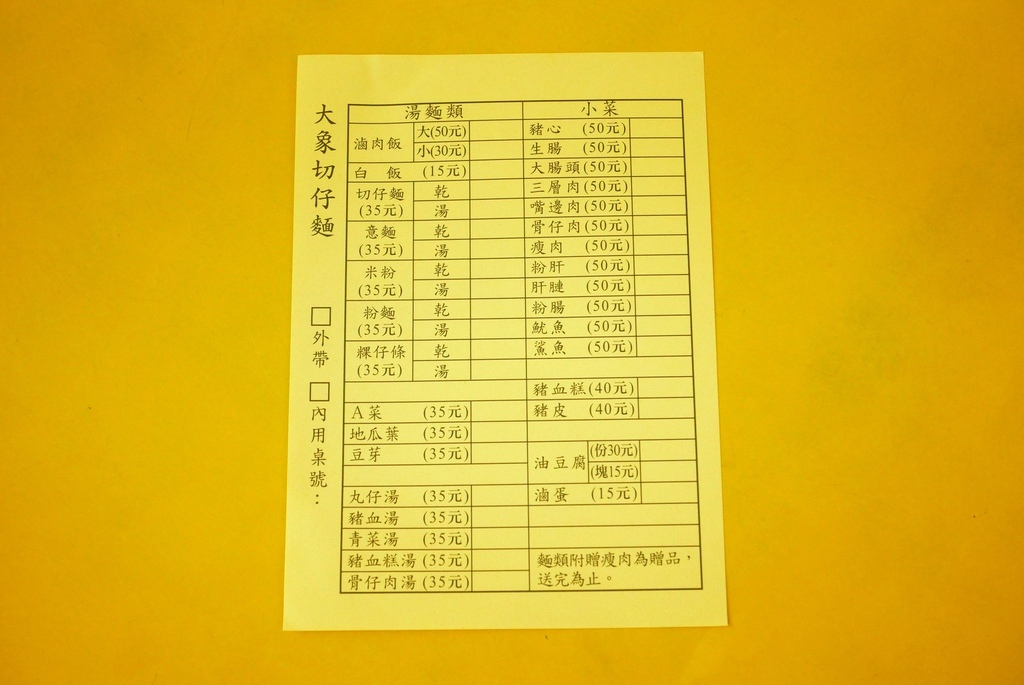 大象切仔麵
□外帶 □內用桌號：
湯麵類
滷肉飯 大(50元)
小(30元)
白 飯 (15元)
切仔麵 乾
(35元) 湯
意麵 乾
(35元) 湯
米粉 乾
(35元) 湯
粉麵 乾
(35元) 湯
粿仔條 乾
(35元) 湯
A菜 (35元)
地瓜葉 (35元)
豆芽 (35元)
丸仔湯 (35元)
豬血湯 (35元)
青菜湯 (35元)
豬血糕湯 (35元)
骨仔肉湯 (35元)
小菜
豬心 (50元)
生腸 (50元)
大腸頭(50元)
三層肉(50元)
嘴邊肉(50元)
骨仔肉(50元)
瘦肉 (50元)
粉肝 (50元)
肝腱 (50元)
粉腸 (50元)
魷魚 (50元)
鯊魚 (50元)
豬血糕(40元)
豬皮 (40元)
油豆腐 (份30元)
(塊15元)
滷蛋 (15元)
麵類附贈瘦肉為贈品，
送完為止。